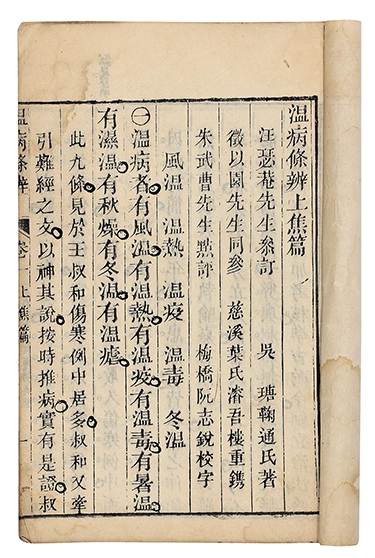 溫病條辨上焦篇
汪瑟菴先生參訂 吳 瑭鞠通氏著
徵以園先生同參 慈溪葉氏濬吾樓重鐫
朱武曹先生㸃評 梅橋阮志銳校字
風溫 溫熱 溫疫 溫毒 冬溫
㊀溫病者有風溫有溫熱有溫疫有溫毒有暑溫
有濕溫有秋燥有冬溫有溫瘧
此九條見於王叔和傷寒例中居多叔和又牽
引難經之文以神其說按時推病實有是證叔
溫病條辨 卷一 上焦篇 一